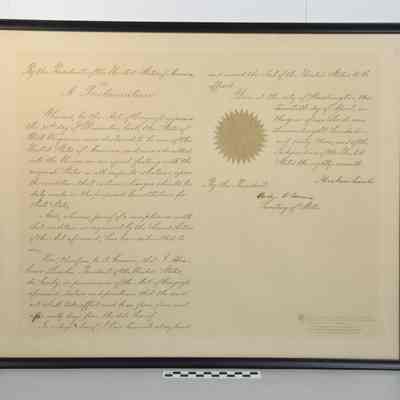 By the President of the United States of America,
A Proclamation.
Whereas, by the Act of Congress approved
the 31st day of December, last, the State of
West Virginia was declared to be one of the
United States of America, and was admitted
into the Union on an equal footing with the
original States in all respects whatever, upon
the condition that certain changes should be
duly made in the proposed Constitution for
that State;
And, whereas, proof of a compliance with
that condition as required by the Second Section
of the Act aforesaid, has been submitted to
me;
Now, therefore, be it known, that I Abra-
ham Lincoln, President of the United States,
do hereby, in pursuance of the Act of Congress
aforesaid, declare and proclaim that the said
act shall take effect and be in force from and
after sixty days from the date hereof.
In witness whereof, I have hereunto set my hand
and caused the Seal of the United States to be
affixed.
Done at the city of Washington, this
twentieth day of April, in
the year of our Lord one
thousand eight hundred
and sixty three, and of the
Independence of the United
States the eighty seventh.
Abraham Lincoln
By the President:
Secretary of State